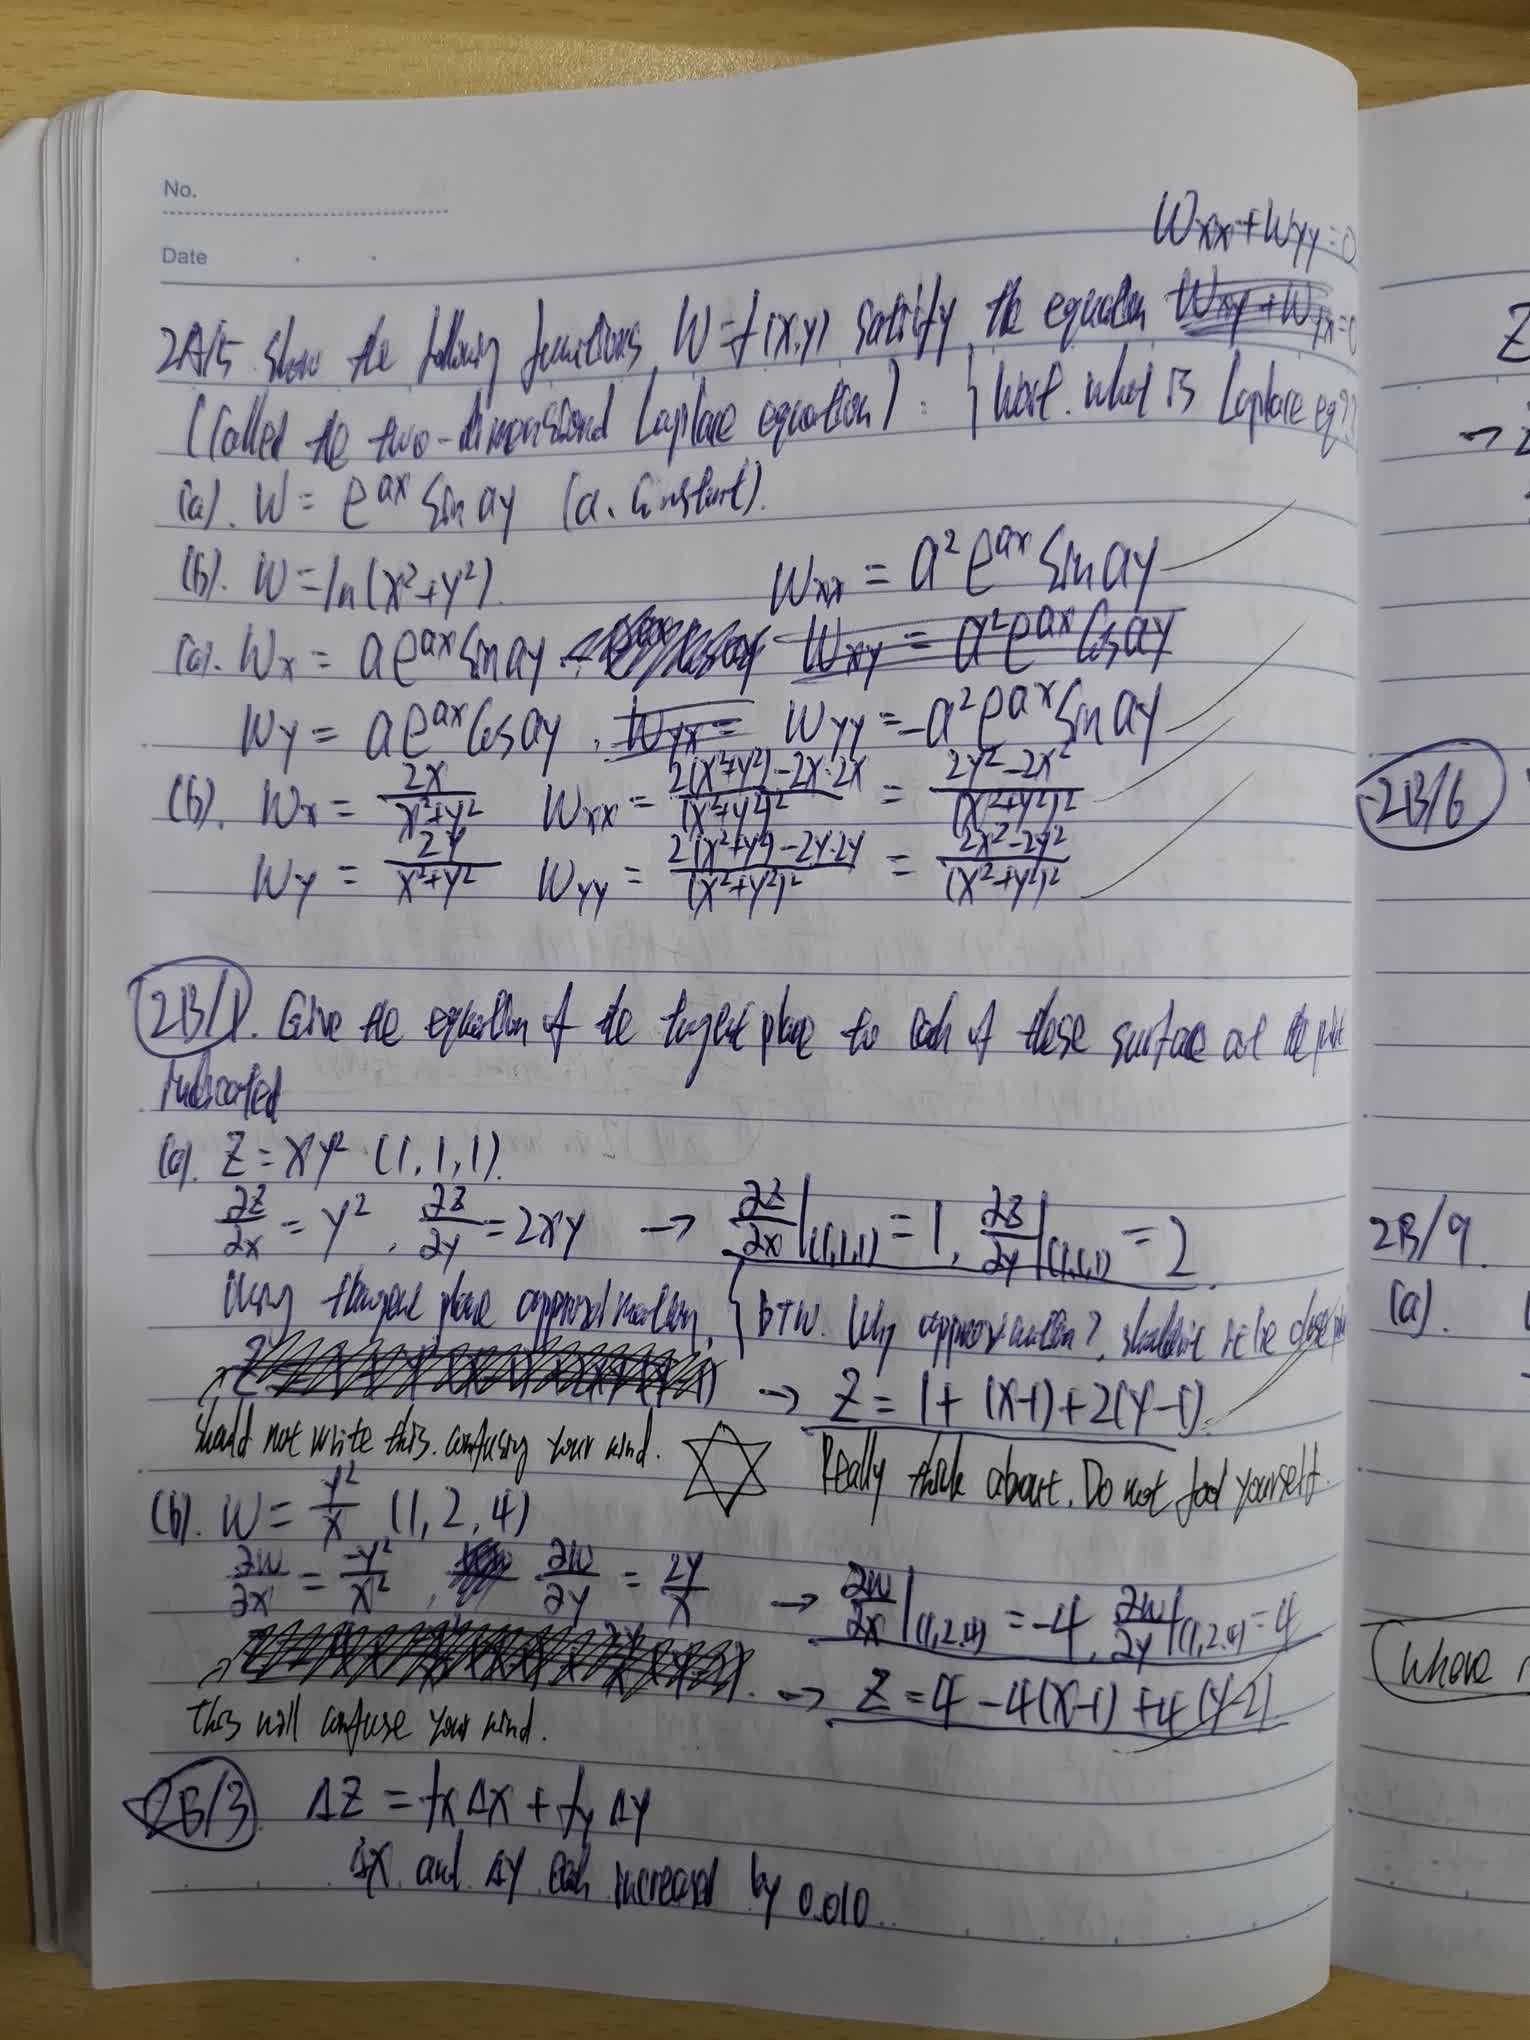 No.
Date
Wxx+Wyy=0
2A/5 Show the following functions W=f(x,y) satisfy the equation Wxy+Wyx=0
(Called the two-dimensional Laplace equation): } what is Laplace eq??
(a). W= e^ax sin ay (a. Constant).
(b). W=ln(x²+y²).
Wxx = a²e^ax sin ay
(a). Wx = ae^ax sin ay Wxy = a²e^ax cos ay
Wy = ae^ax cos ay, Wyx= Wyy = -a²e^ax sin ay
(b). Wx = 2x/(x²+y²) Wxx = (2(x²+y²)-2x·2x)/(x²+y²)² = (2y²-2x²)/(x²+y²)²
Wy = 2y/(x²+y²) Wyy = (2(x²+y²)-2y·2y)/(x²+y²)² = (2x²-2y²)/(x²+y²)²
2B/1. Give the equation of the tangent plane to each of these surface at the point
indicated
(a). Z=xy² (1,1,1).
∂z/∂x = y², ∂z/∂y = 2xy → ∂z/∂x|(1,1,1) = 1, ∂z/∂y|(1,1,1) = 2
Using plane approximation, { BTW. Why approximation?, be close
→ Z = 1+(x-1)+2(y-1)
should not write this. confusing your mind. Really think about. Do not fool yourself.
(b). W = y²/x (1,2,4)
∂w/∂x = -y²/x², ∂w/∂y = 2y/x → ∂w/∂x|(1,2,4) = -4, ∂w/∂y|(1,2,4) = 4
→ Z = 4-4(x-1)+4(y-2)
This will confuse your mind.
2B/3 ΔZ = fxΔx + fyΔy
Δx and Δy each increased by 0.010
Z
→
2B/6
2B/9.
(a).
Where